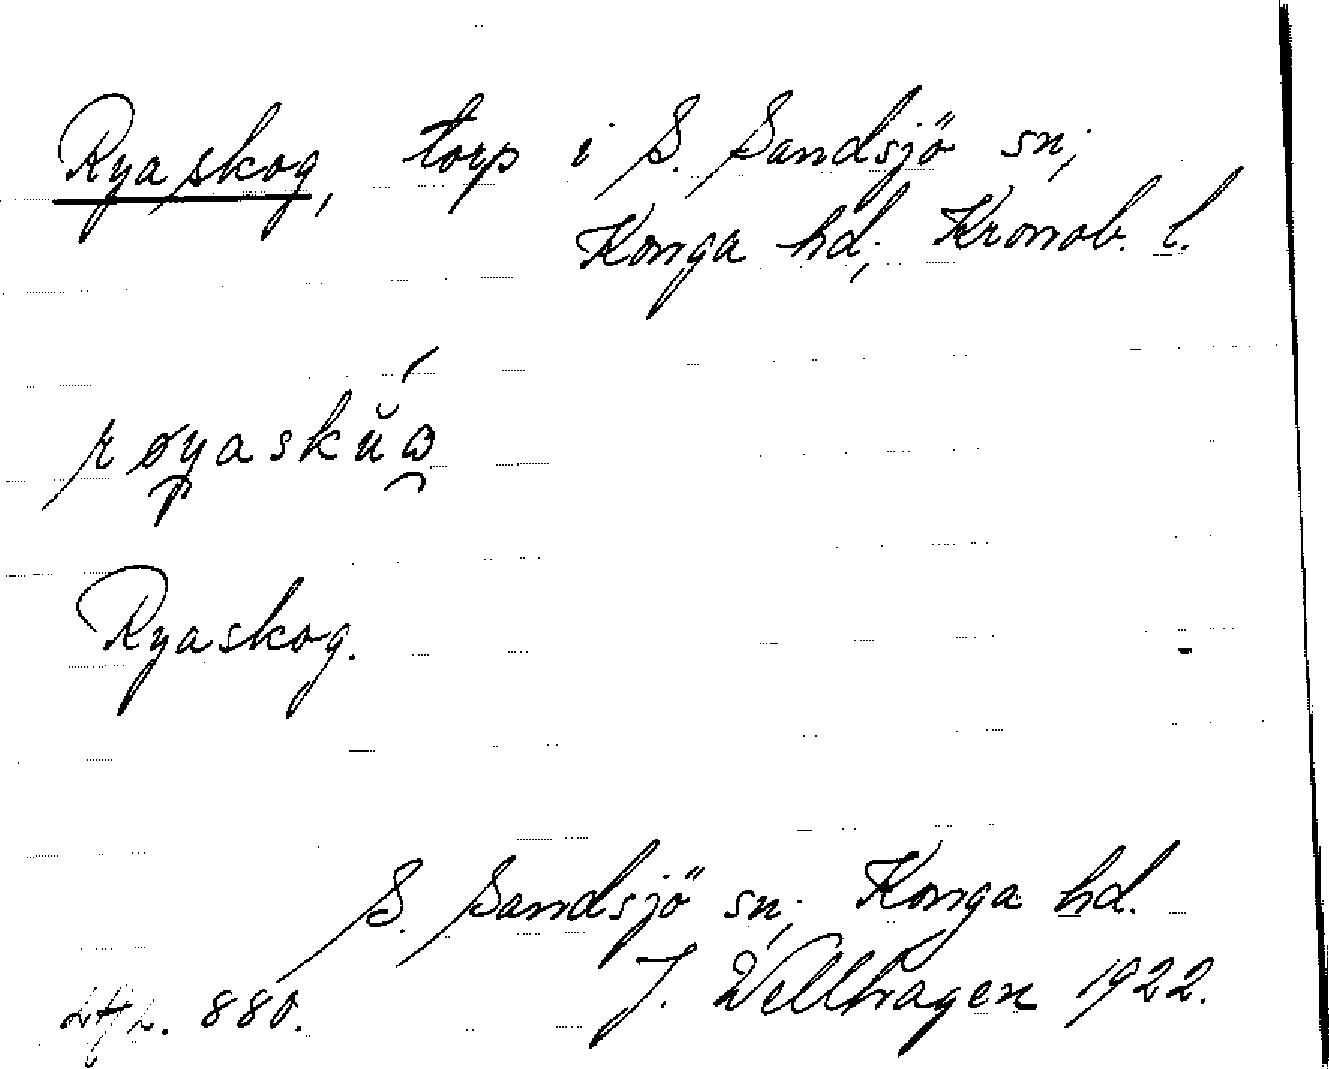 Ryaskog, torp i S. Sandsjö sn;
Konga hd; Kronob. l.
Ryaskog.
S. Sandsjö sn; Konga hd.
880. J. Wellhagen 1922.